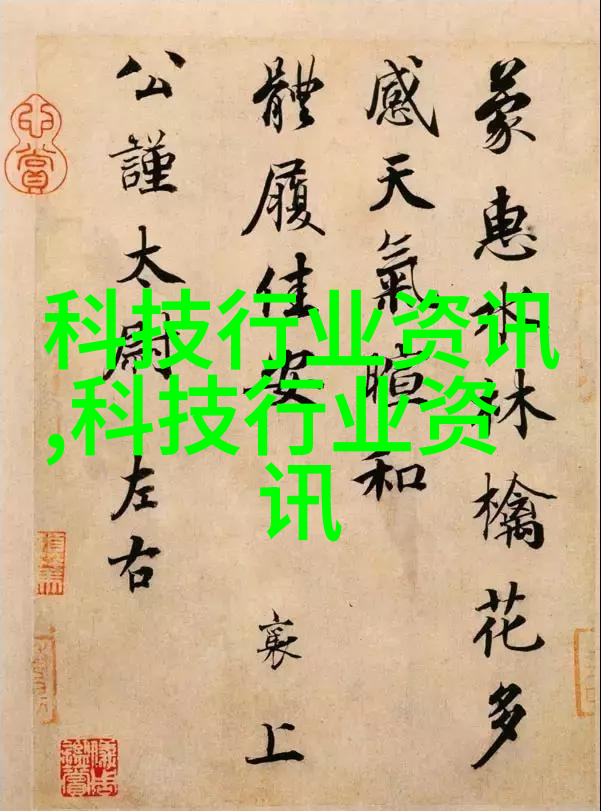 蒙惠水林檎花多
感天氣暄和
體履佳安 襄上
公謹太尉左右
科技行业资讯
,科技行业资
讯